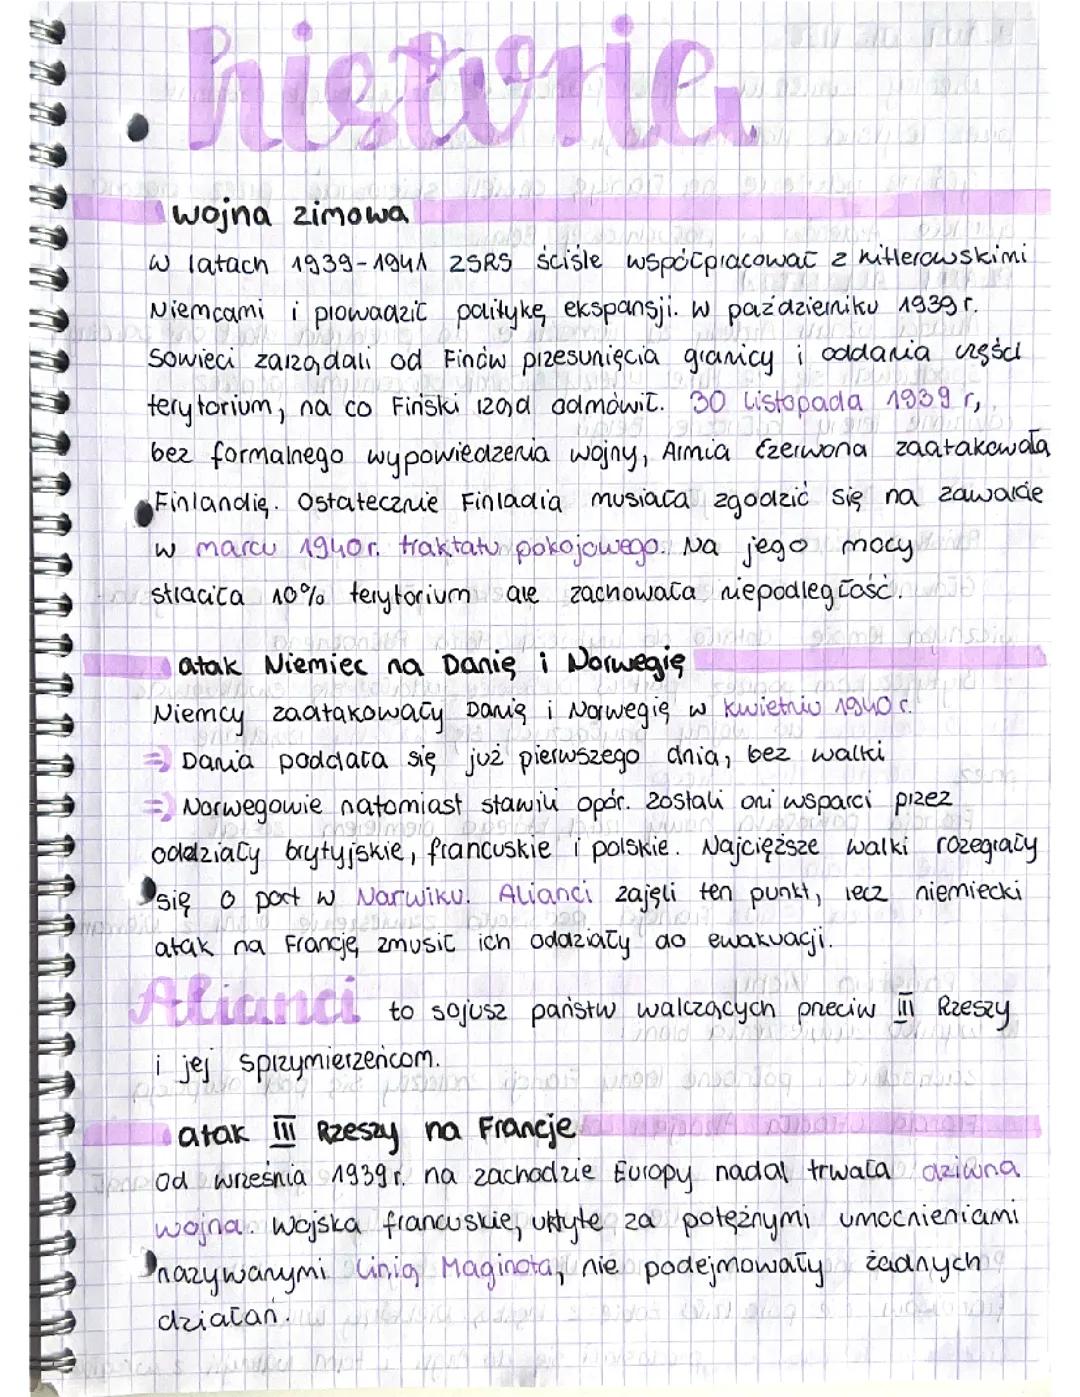 historia
wojna zimowa
W latach 1939-1941 ZSRS ściśle współpracować z hitlerowskimi
Niemcami i prowadzić politykę ekspansji. W październiku 1939 r.
Sowieci zarządali od Finów przesunięcia granicy i oddania części
terytorium, na co Fiński rząd odmówił. 30 listopada 1939 r,
bez formalnego wypowiedzenia wojny, Armia Czerwona zaatakowała
Finlandię. Ostatecznie Finladia musiała zgodzić się na zawarcie
w marcu 1940r. traktatu pokojowego. Na jego mocy
straciła 10% terytorium ale zachowała niepodległość.
atak Niemiec na Danię i Norwegię
Niemcy zaatakowały Danię i Norwegię w kwietniu 1940 r.
=> Dania poddała się już pierwszego dnia, bez walki
=> Norwegowie natomiast stawili opór. Zostali oni wsparci przez
oddziały brytyjskie, francuskie i polskie. Najcięższe walki rozegrały
się o port w Narwiku. Alianci zajęli ten punkt, lecz niemiecki
atak na Francję zmusił ich oddziały do ewakuacji.
Alianci to sojusz państw walczących przeciw III Rzeszy
i jej sprzymierzeńcom.
atak III Rzeszy na Francje
Od września 1939r. na zachodzie Europy nadal trwała dziwna
wojna. Wojska francuskie, ukryte za potężnymi umocnieniami
nazywanymi Linią Maginota, nie podejmowały żadnych
działań.